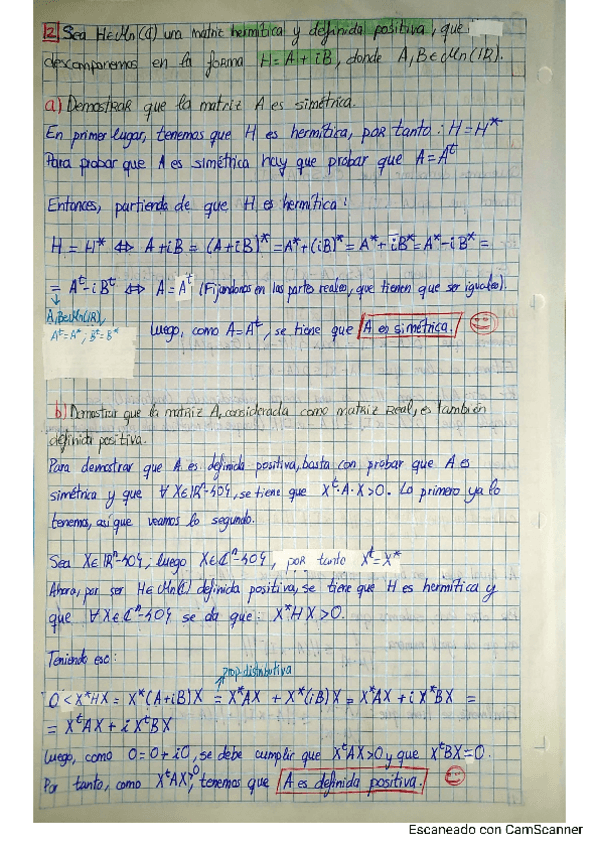 2 Sea H∈Mn(ℂ) una matriz hermítica y definida positiva, que
descomponemos en la forma H = A + iB, donde A, B ∈ Mn(ℝ).
a) Demostrar que la matriz A es simétrica.
En primer lugar, tenemos que H es hermítica, por tanto: H = H*
Para probar que A es simétrica hay que probar que A = Aᵗ
Entonces, partiendo de que H es hermítica:
H = H* ⇔ A + iB = (A+iB)* = A* + (iB)* = A* + iB* = A* - iB* =
= Aᵗ - iBᵗ ⇔ A = Aᵗ (Fijándonos en las partes reales, que tienen que ser iguales).
A,B∈Mn(ℝ),
Aᵗ=A*, Bᵗ=B*
Luego, como A = Aᵗ, se tiene que A es simétrica.
b) Demostrar que la matriz A, considerada como matriz Real, es también
definida positiva.
Para demostrar que A es definida positiva, basta con probar que A es
simétrica y que ∀X∈ℝⁿ-{0}, se tiene que Xᵗ·A·X>0. Lo primero ya lo
tenemos, así que veamos lo segundo.
Sea X∈ℝⁿ-{0}, luego X∈ℂⁿ-{0}, por tanto Xᵗ=X*
Ahora, por ser H∈Mn(ℂ) definida positiva, se tiene que H es hermítica y
que ∀X∈ℂⁿ-{0} se da que: X*HX>0.
Teniendo eso:
prop. distributiva
0 < X*HX = X*(A+iB)X = X*AX + X*(iB)X = X*AX + iX*BX =
= XᵗAX + iXᵗBX
Luego, como 0=0+i0, se debe cumplir que XᵗAX>0 y que XᵗBX=0.
Por tanto, como XᵗAX>0, tenemos que A es definida positiva.
Escaneado con CamScanner